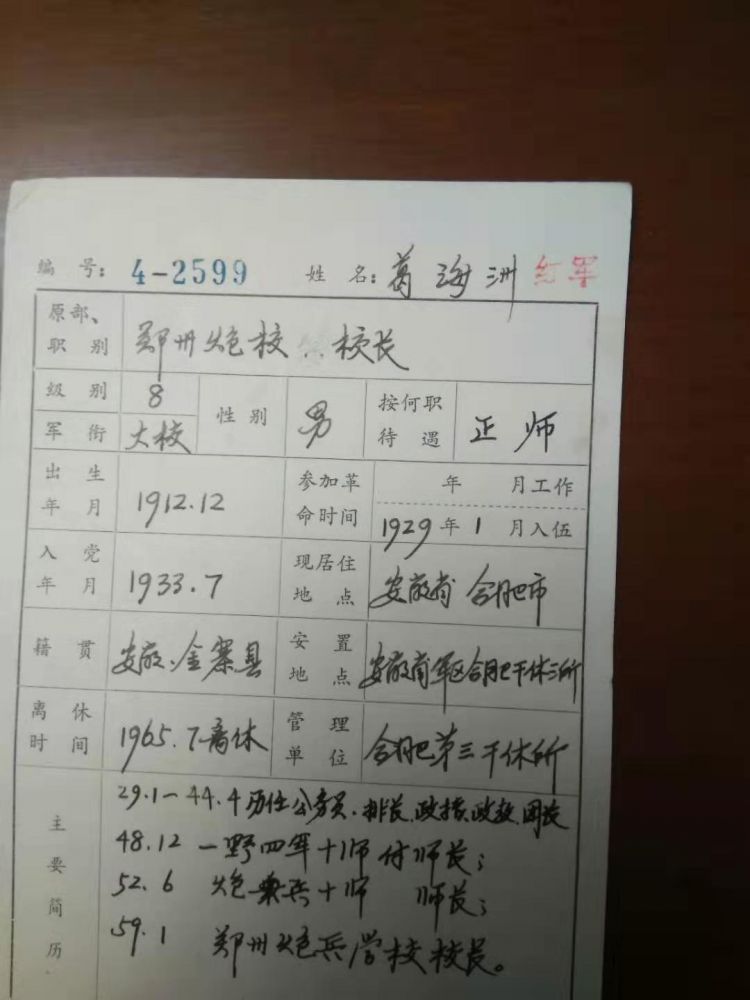 编号: 4-2599 姓名: 葛海洲 红军
原部、职别 郑州炮校 校长
级别 8 性别 男 按何职待遇 正师
军衔 大校
出生年月 1912.12 参加革命时间 年 月工作
1929年1月入伍
入党年月 1933.7 现居住地点 安徽省合肥市
籍贯 安徽.金寨县 安置地点 安徽省军区合肥干休三所
离休时间 1965.7离休 管理单位 合肥第三干休所
主要简历
29.1-44.4历任公务员.排长.政指.政教.团长
48.12 一野四军十师付师长;
52.6 炮兵十师 师长;
59.1 郑州炮兵学校校长。